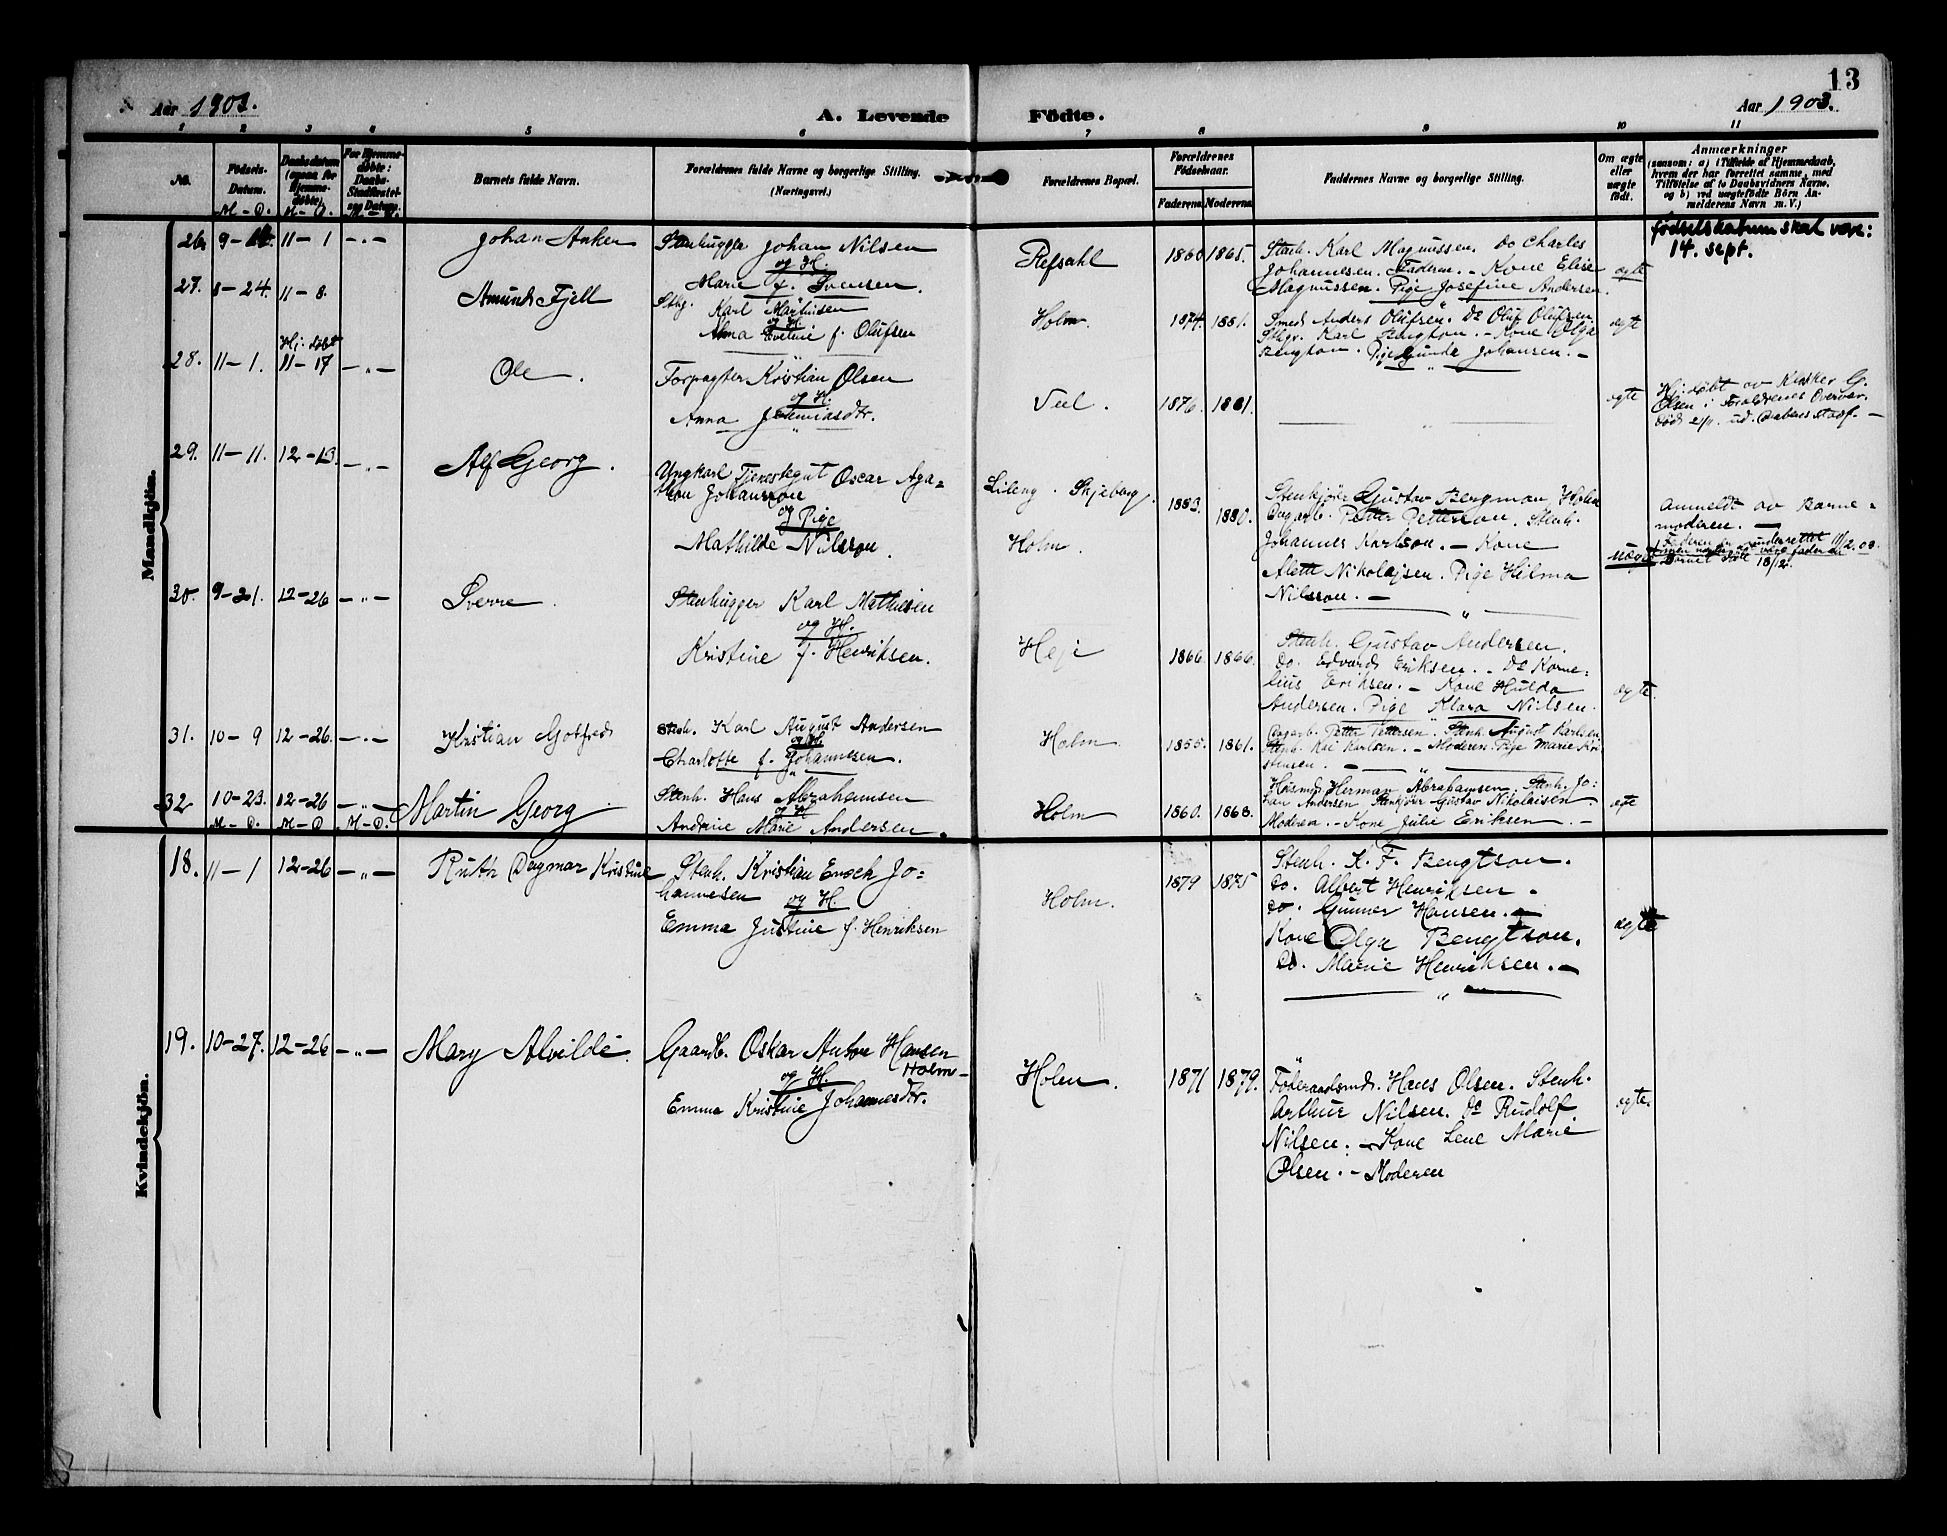 13
Aar 1903.
A. Levende Födte.
Aar 1903.
1 2 3 4 5 6 7 8 9 10 11
No.
Födsels-
Datum.
M – D.
Daabsdatum
(ogsaa for
Hjemme-
döbte).
M – D.
For Hjemme-
döbte:
Daabs-
Stadfæstel-
sens Datum.
M – D.
Barnets fulde Navn.
Forældrenes fulde Navne og borgerlige Stilling.
(Næringsvei.)
Forældrenes Bopæl.
Forældrenes
Födselsaar.
Faderens Moderens
Faddernes Navne og borgerlige Stilling.
Om ægte
eller
uægte
födt.
Anmærkninger
(saasom: a) i Tilfælde af Hjemmedaab,
hvem der har forrettet samme, med
Tilföielse af to Daabsvidners Navne,
og b) ved uægtefödte Börn An-
melderens Navn m. V.)
Mandkjön.
26. 9–14. 11–1 –„– Johan Anker
Stenhugger Johan Nilsen
og H.
Marie f. Svensen.
Refsahl 1860 1865.
Stenh. Karl Magnussen. Do Charles
Johannesen. Faderen. – Kone Elise
Magnussen. Pige Josefine Andersen.
ægte
fødselsdatum skal være:
14. sept.
27. 8–24. 11–8. Amund Fjell
Sthg. Karl Martinsen
og H.
Alma Eveline f. Olufsen
Holm. 1874. 1881.
Smed Anders Olufsen. Do Oluf Olufsen
Sthgr. Karl Bengtson. – Kone Olga
Bengtson. Pige Gunda Johansen. –
ægte
28. 11–1. Hj: døbt
11–17 –„– Ole.
Forpagter Kristian Olsen
og H.
Anna Jeremiasdtr.
Veel. 1876. 1881.
ægte
Hj: døbt av Kirkes. G.
Olsen i Forældrenes Overvær.
Død 2/11. ud. Daabens stadf. –
29. 11–11. 12–13. –„– Alf Georg.
Ungkarl Tjenestegut Oscar Aga=
thon Johansson
og Pige
Mathilde Nilsson.
Lileng. Skjeberg.
Holm.
1883. 1880.
Stenkjører Gustav Bergman Holm
Dagarb. Petter Petterson. Stenh.
Johannes Karlson. – Kone
Alette Nikolajsen. Pige Hilma
Nilsson. –
uægte
Anmeldt av Barne=
moderen. –
Faderen er underrettet 11/2.09.
30. 9–21. 12–26 –„– Sverre.
Stenhugger Karl Mathisen
og H.
Kristine f. Henriksen.
Heje 1866. 1866.
Stenh. Gustav Andersen.
Do. Edvard Eriksen. – Do Korne=
lius Eriksen. – Kone Hulda
Andersen. Pige Klara Nilsen.
ægte.
31. 10–9 12–26. –„– Kristian Gotfred
Stenh. Karl August Andersen
og H.
Charlotte f. Johannesen.
Holm 1855. 1861.
Dagarb. Petter Pettersen. Stenh. August Karlsen
Stenh. Kai Karlsen. – Moderen. Pige Marie Kri
stensen. –
32 10–23. 12–26 –„– Martin Georg.
Stenh. Hans Abrahamsen
og H
Andrine Marie Andersen.
Holm 1860. 1868.
Husmd. Herman Abrahamsen. Stenh. Jo=
han Andersen. Stenkjører Gustav Nikolaisen
Moderen. – Kone Julie Eriksen. –
ægte
M–D. M–D M–D.
Kvindekjön.
18. 11–1 12–26 –„– Ruth Dagmar Kristine
Stenh. Kristian Enoch Jo=
hannesen
og H.
Emma Justine f. Henriksen
Holm. 1879 1875
Stenh. K. F. Bengtson.
Do. Albert Henriksen –
Do. Gunner Hansen. –
Kone Olga Bengtson.
Do. Marie Henriksen. –
ægte
19. 10–27. 12–26 –„– Mary Alvilde.
Gaardb. Oskar Anton Hansen
Holm –
og H.
Emma Kristine Johannesdtr.
Holm. 1871 1879.
Føderaadsmd. Hans Olsen. Stenh.
Arthur Nilsen. Do Rudolf
Nilsen. – Kone Lene Marie
Olsen. – Moderen
ægte.